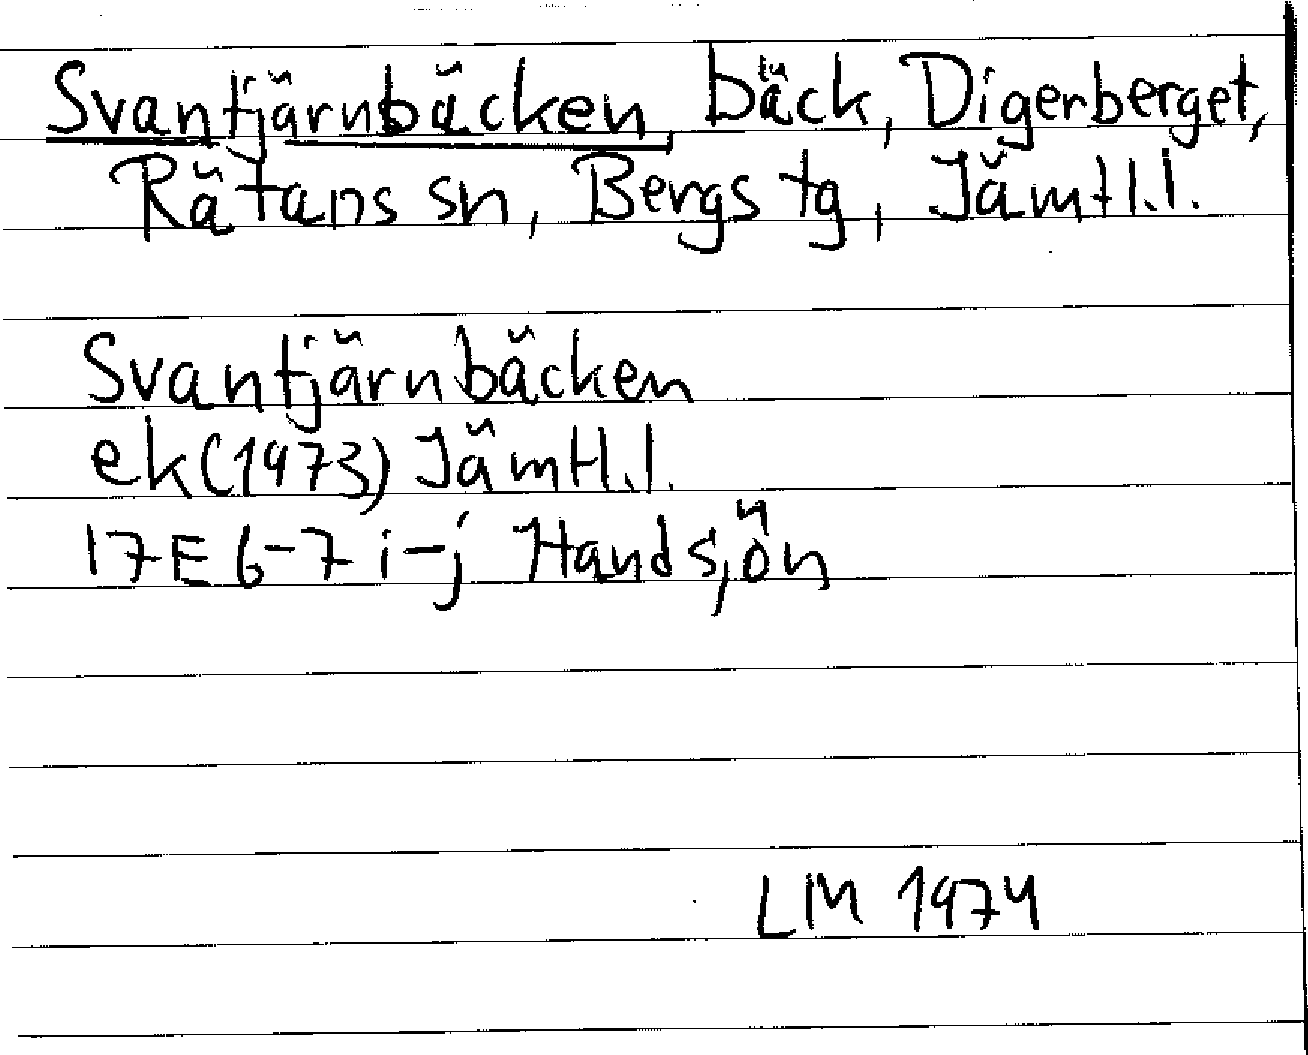 Svantjärnbäcken, bäck, Digerberget,
Rätans sn, Bergs tg, Jämtl.l.
Svantjärnbäcken
ek(1973) Jämtl.l.
17E 6-7 i-j Handsjön
LM 1974